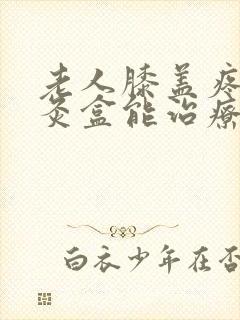 老人膝盖疼
灸盒能治疗
白衣少年在否